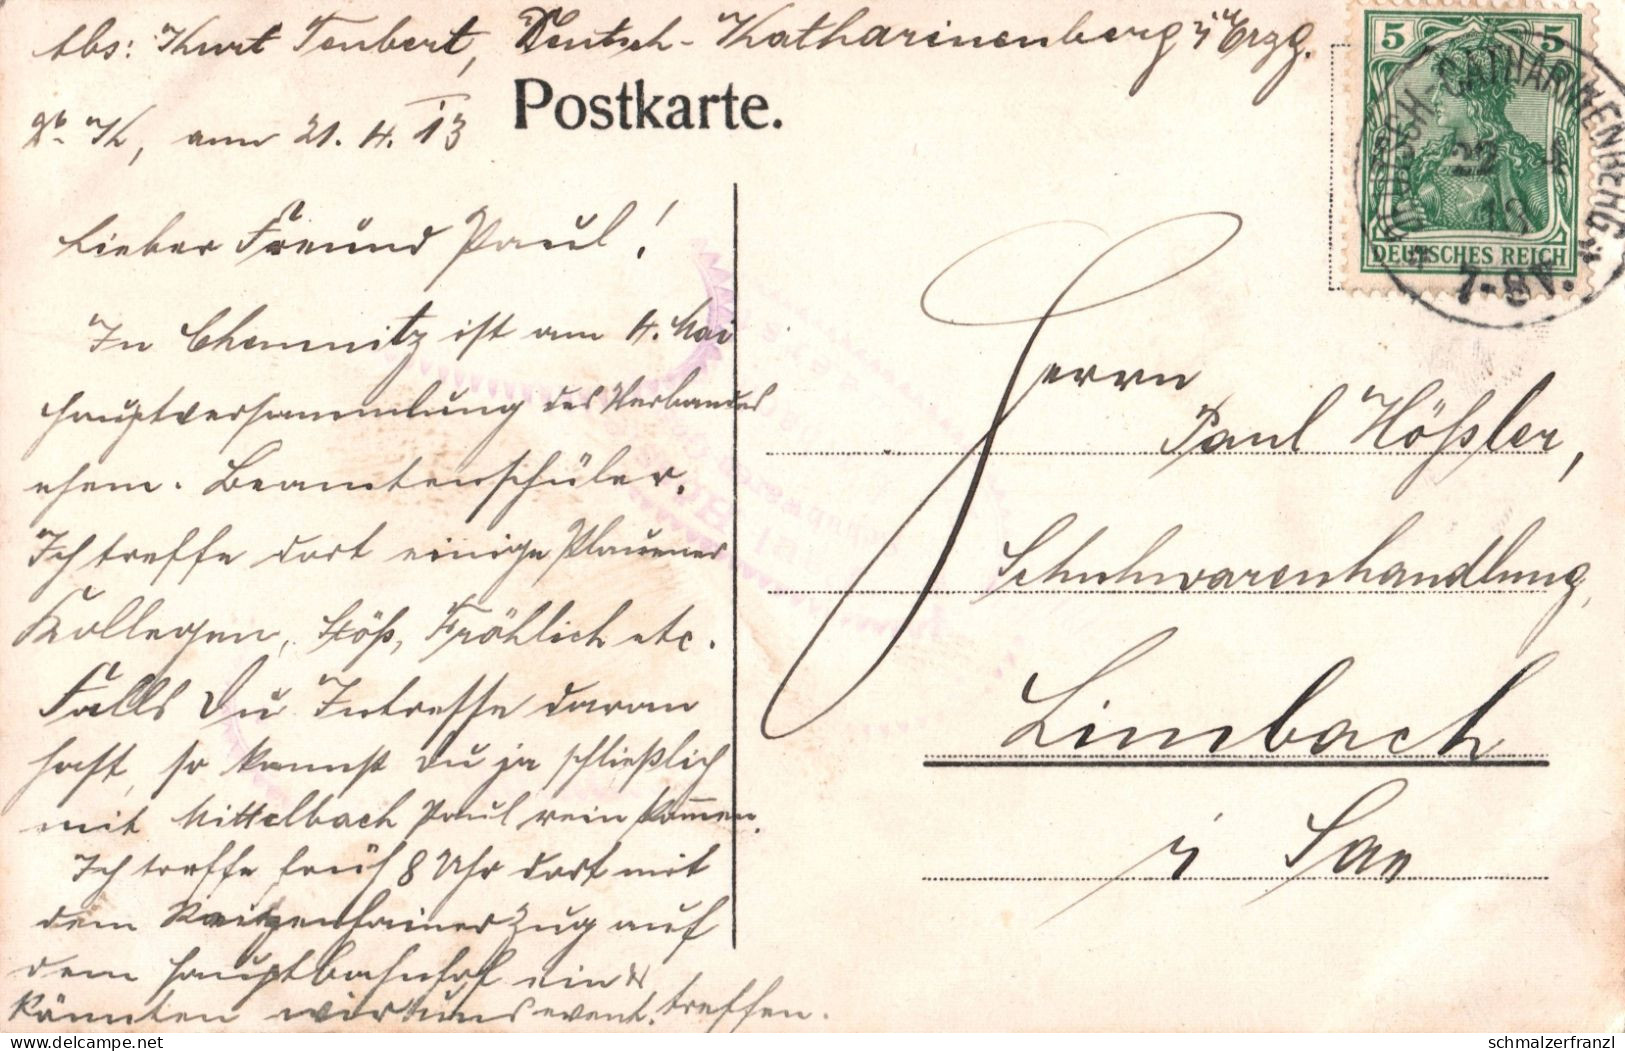 Abs: Kurt Teubert, Deutsch-Katharinenberg i Erzg.
Postkarte.
K, am 21. 4. 13
Lieber Freund Paul!
In Chemnitz ist am 4. Mai
Hauptversammlung des Verbandes
ehem. Beamtenschüler.
Ich treffe dort einige Plauener
Kollegen, Stöß, Fröhlich etc.
Falls Du Interesse daran
hast, so kannst Du ja schließlich
mit Mittelbach Paul rein kom̅en.
Ich treffe früh 8 Uhr dort mit
dem Reitzenhainer Zug auf
dem Hauptbahnhof ein u
könnten wir uns event. treffen.
5 5
DEUTSCHES REICH
DEUTSCH-CATHARINENBERG
22 4
13
7-8V.
Herrn
Paul Hößler,
Schuhwarenhandlung,
Limbach
i Sa
schmalzerfranzl